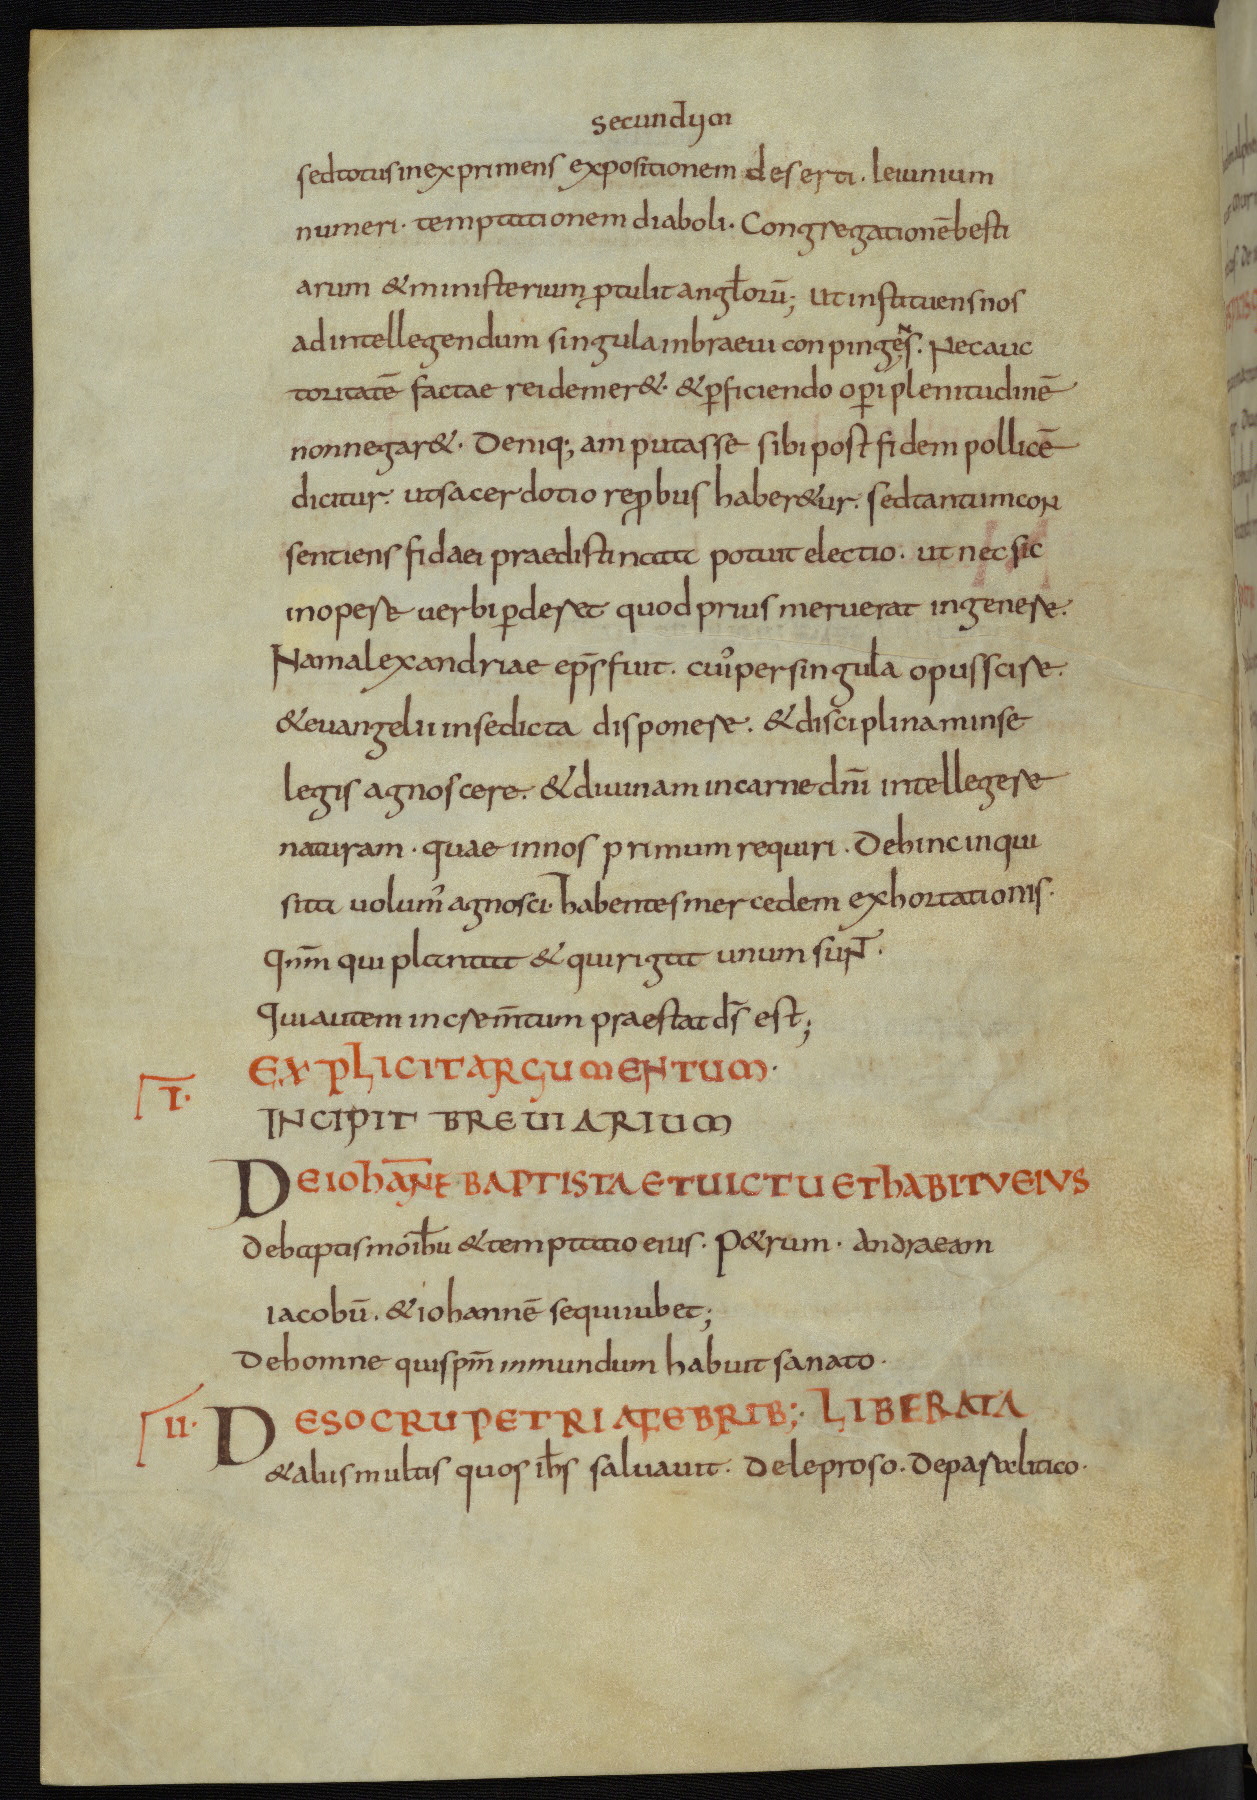 secundum
sed totus inexprimens expositionem deserti. Ieiunium
numeri. temptationem diaboli. Congregationē besti
arum & ministerium ꝓtulit angłorū; ut instituens nos
ad intellegendum singula inbraeui conpingēs. Nec auc
toritatē factae rei demer&. & ꝑficiendo oꝑi plenitudinē
non negar&. Deniq; amputasse sibi post fidem pollicē
dicitur. ut sacerdotio reꝓbus haber&ur. sed tantum con
sentiens fidaei praedistinata potuit electio. ut nec sic
in opere uerbi ꝑderet quod prius meruerat in genere.
Nam alexandriae ep̄s fuit. cui᾽ per singula opus scire.
& euangelii in se dicta disponere. & disciplinam in se
legis agnoscere. & diuinam in carne dn̄i intellegere
naturam. quae in nos primum requiri. Dehinc inqui
sita uolum᾽ agnosci. habentes mercedem exhortationis.
Qnm̄ qui plantat & qui rigat unum sunt.
Qui autem increm̄tum praestat ds̄ est;
EXPLICIT ARGUMENTUM.
I.
INCIPIT BREUIARIUM
DE IOHANNE BAPTISTA ET UICTU ET HABITV EIVS
De baptismo ih̄u & temptatio eius. P&rum. Andraeam
iacobū. & iohannē sequi iubet;
De homne qui spm̄ inmundum habuit sanato.
II.
DE SOCRU PETRI A FEBRIB; LIBERATA
& aliis multis quos ih̄s saluauit. De leproso. De paralitico.